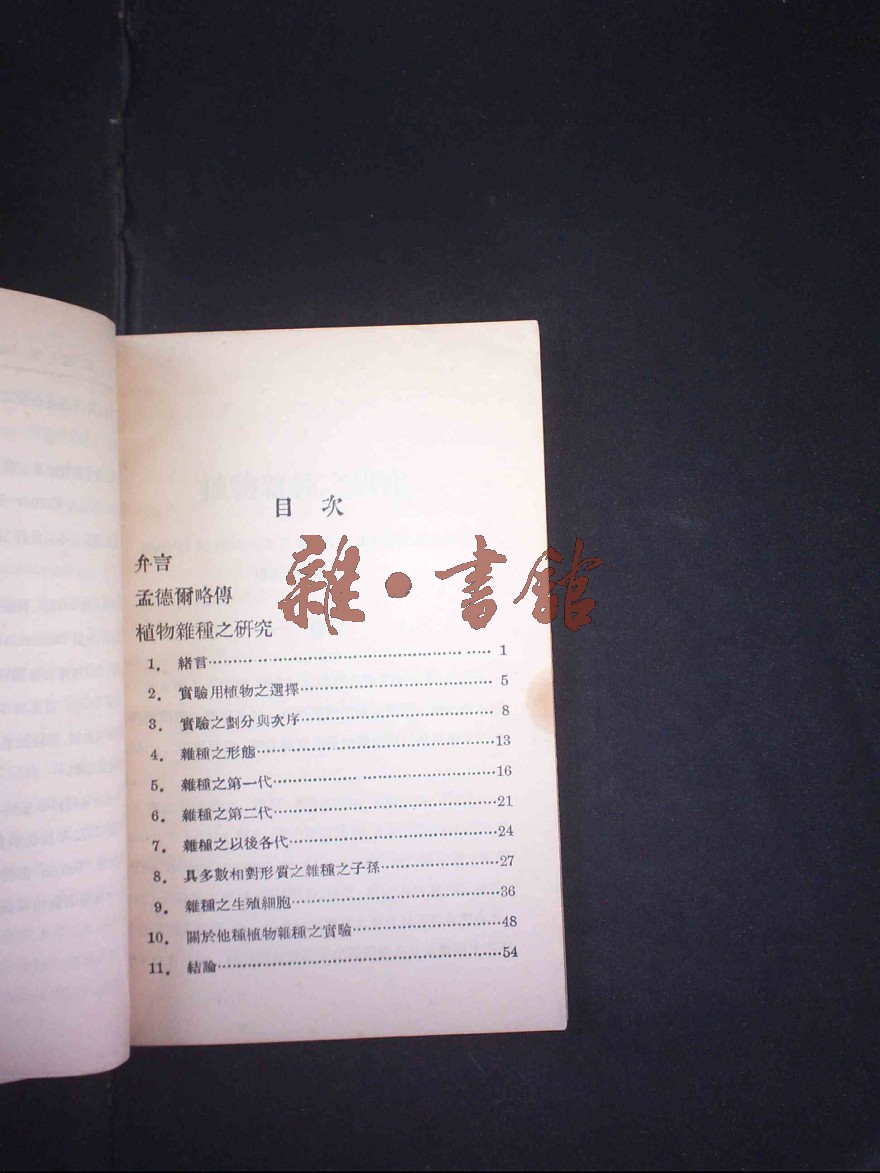 目 次
雜·書館
弁言
孟德爾略傳
植物雜種之研究
1. 緒言……………………………………………1
2. 實驗用植物之選擇……………………………5
3. 實驗之劃分與次序……………………………8
4. 雜種之形態……………………………………13
5. 雜種之第一代…………………………………16
6. 雜種之第二代…………………………………21
7. 雜種之以後各代………………………………24
8. 具多數相對形質之雜種之子孫………………27
9. 雜種之生殖細胞………………………………36
10. 關於他種植物雜種之實驗……………………48
11. 結論……………………………………………54